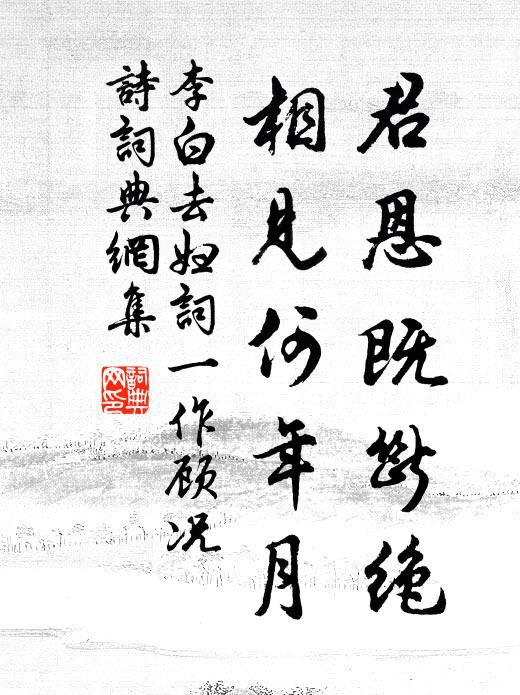 君恩既断绝
相见何年月
李白去妇詞一作顾况
詩詞典網集
詞典網印